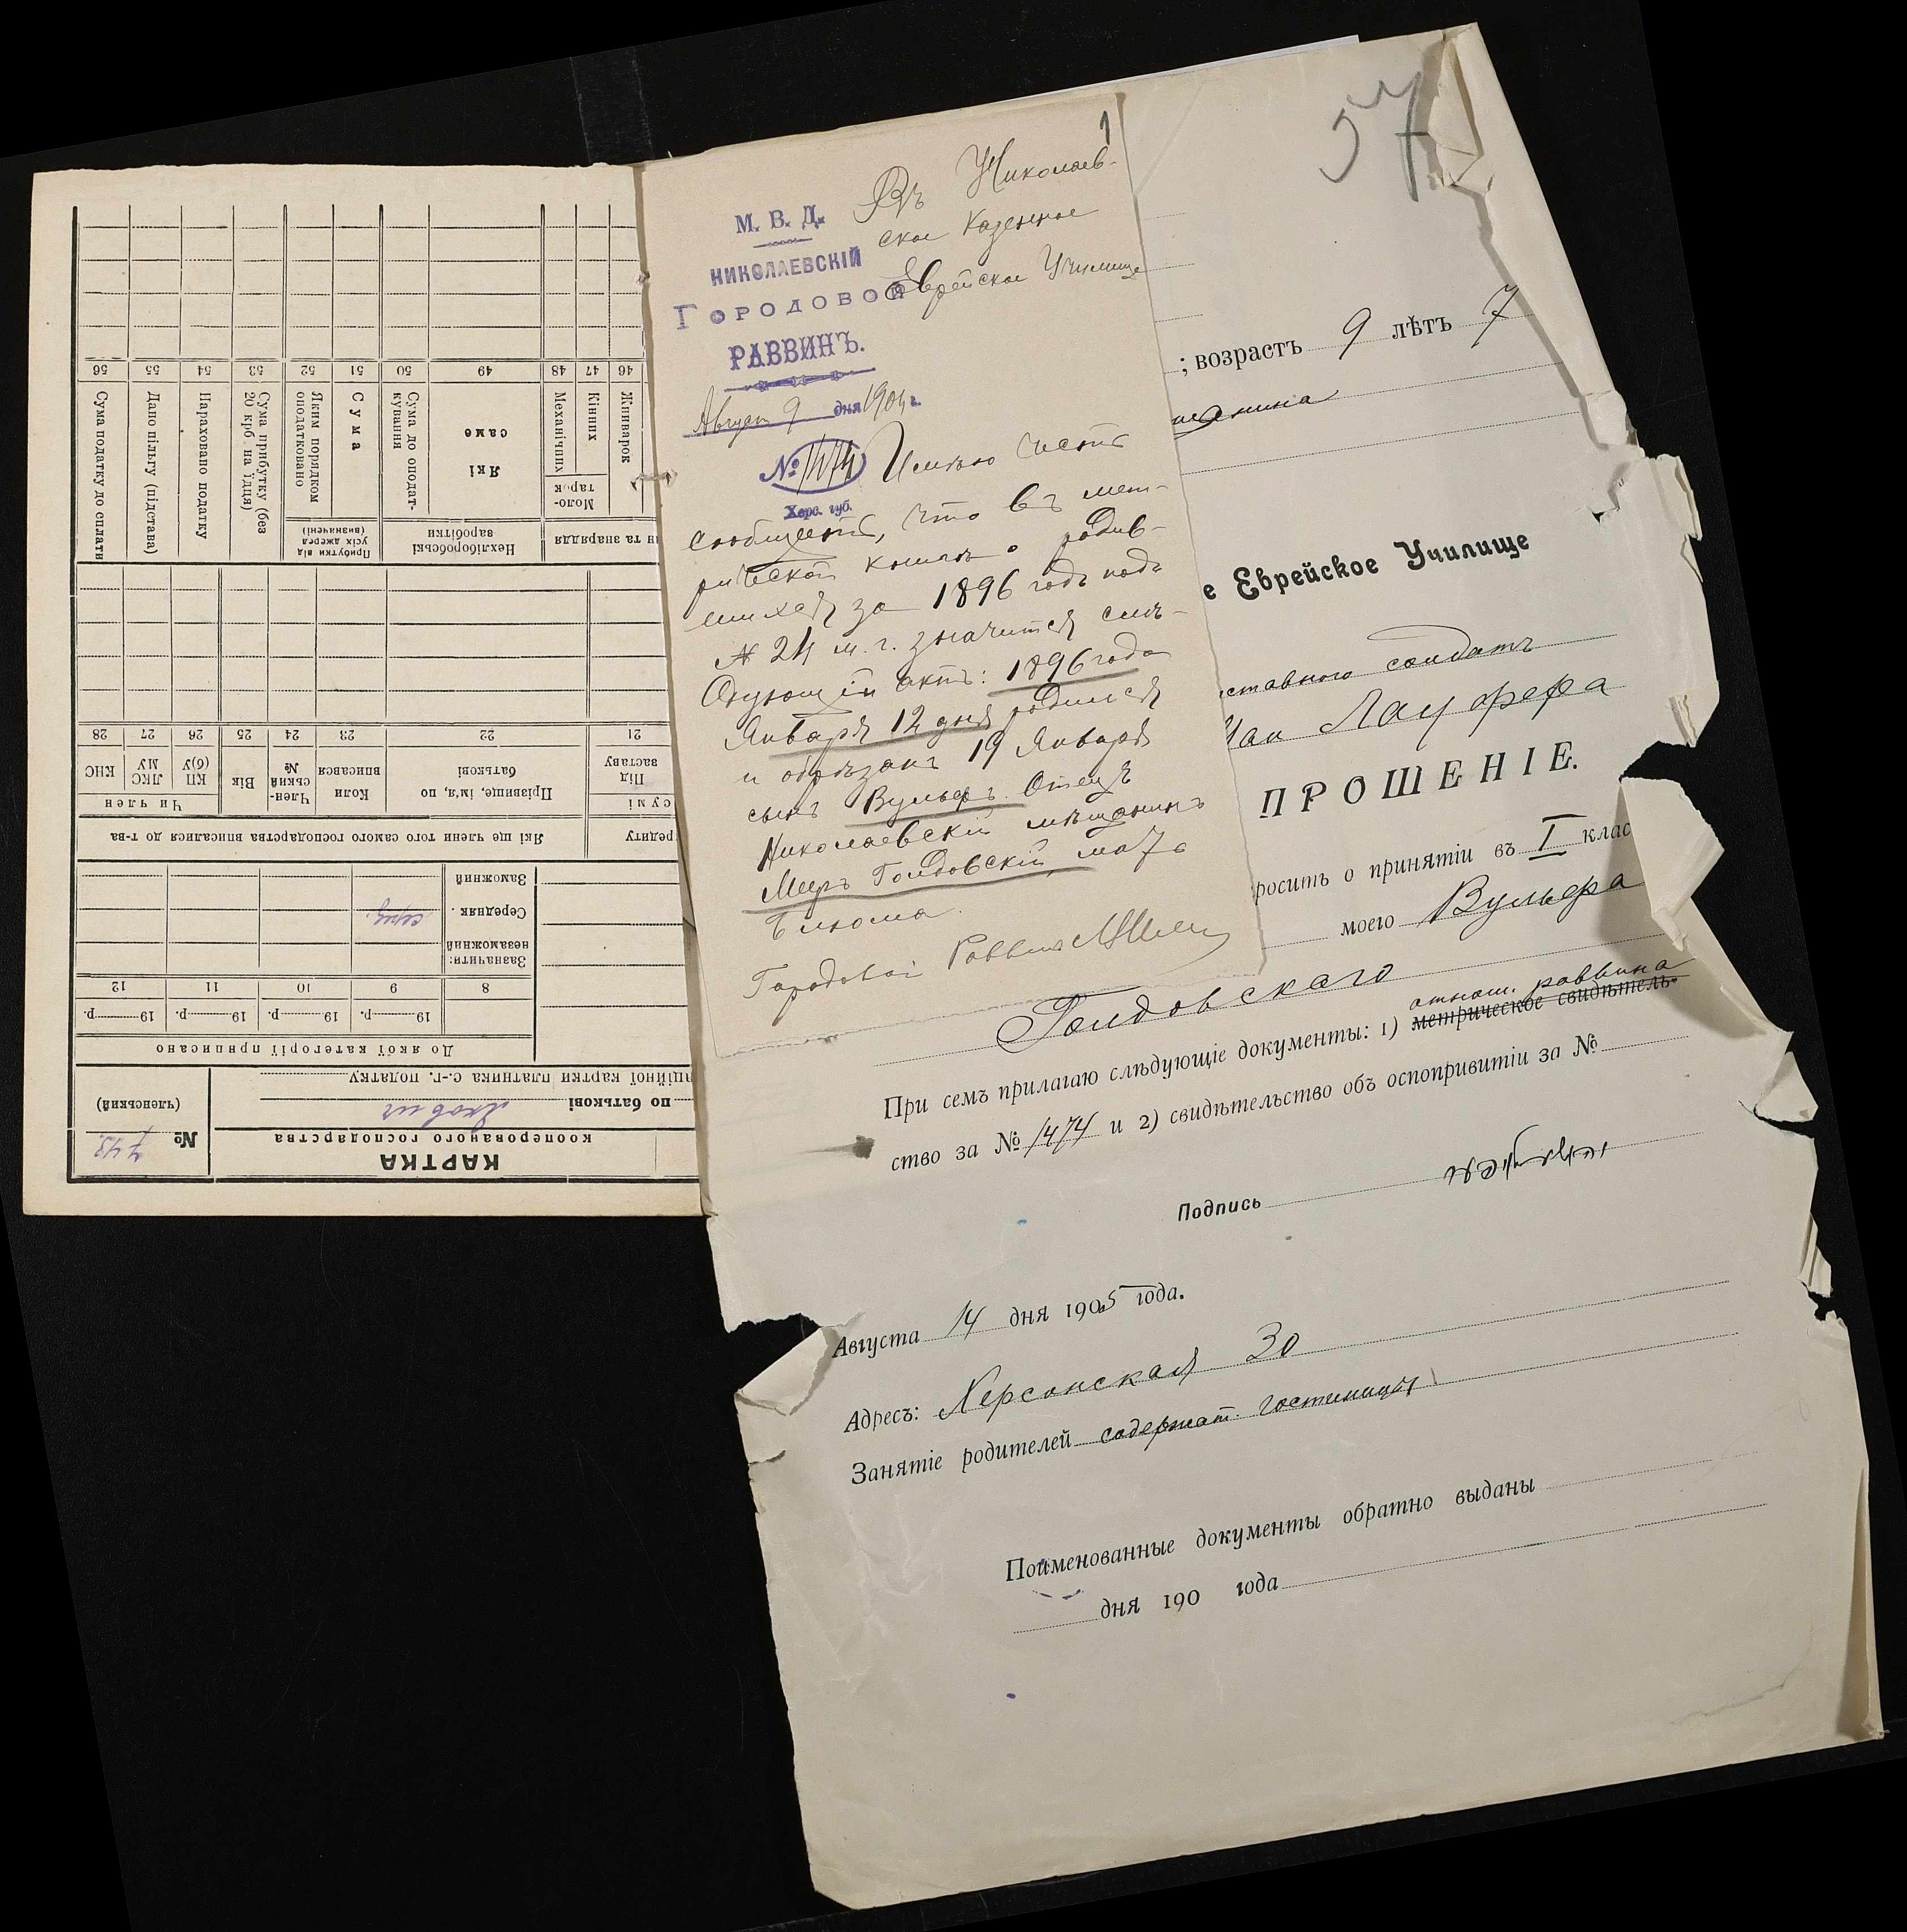 1
Въ Николаев-
ское Казенное
Еврейское Училище
М. В. Д.
НИКОЛАЕВСКІЙ
ГОРОДОВОЙ
РАВВИНЪ.
Август 9 дня 190 г.
№ 1474
Херс. губ.
Имѣю честь
сообщить, что въ мет-
рической книгѣ о родив-
шихся за 1896 годъ подъ
№ 24 м. г. значится слѣ-
дующій актъ: 1896 года
Января 12 дня родился
и обрѣзанъ 19 Января
сынъ Вульфъ. Отецъ
Николаевскій мѣщанинъ
Меръ Голдовскій, мать
Блюма.
Городовой Раввинъ
57
; возрастъ 9 лѣтъ 7
щанина
е Еврейское Училище
ставного солдата
Лауфера
ПРОШЕНІЕ.
росить о принятіи въ I клас
моего Вульфа
Голдовскаго
отнош. раввина
При семъ прилагаю слѣдующіе документы: 1) метрическое свидѣтель-
ство за № 1474 и 2) свидѣтельство объ оспопривитіи за №
Подпись
Августа 14 дня 1905 года.
Адресъ: Херсонская 30
Занятіе родителей содержат. гостиницы
Поименованные документы обратно выданы
дня 190 года
КАРТКА
кооперованого господарства
№ 743.
(членський)
по батькові Якович
ційної картки платника с.-г. податку
До якої категорії приписано
19 р. 19 р. 19 р. 19 р.
8 9 10 11 12
Зазначити:
незаможний
Середняк. серед.
Заможний
редиту
Які ще члени того самого господарства вписалися до т-ва
сумі
Під заставу
Прізвище, ім'я, по батькові
Коли вписався
Член-ський №
Вік
Чи член
КП (б)У
ЛКС МУ
КНС
21 22 23 24 25 26 27 28
н та знаряддя
Нехліборобські заробітки
Прибутки від усіх джерел (визначені)
Живарок
Кінних
Механічних
Моло-тарок
Які саме
Сума до оподат-кування
Сума
Яким порядком оподатковано
Сума прибутку (без 20 крб. на їдця)
Нараховано податку
Дано пільгу (підстава)
Сума податку до сплати
46 47 48 49 50 51 52 53 54 55 56